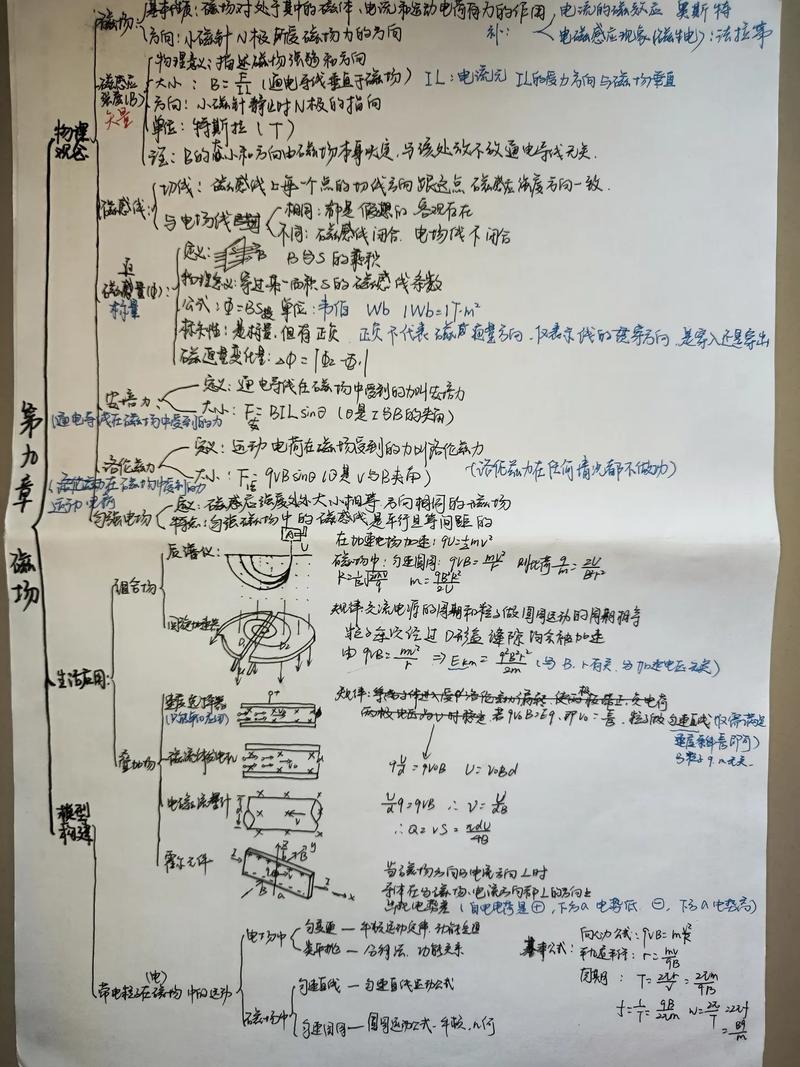 第九章 磁场
物理观念
磁场: 基本性质: 磁场对处于其中的磁体、电流和运动电荷有力的作用
方向: 小磁针N极所受磁场力的方向
补: 电流的磁效应 奥斯特
电磁感应现象(磁生电): 法拉第
磁感应强度(B) 矢量
物理意义: 描述磁场强弱和方向
大小: B=F/IL (通电导线垂直于磁场) IL: 电流元 IL的受力方向与磁场垂直
方向: 小磁针静止时N极的指向
单位: 特斯拉 (T)
注: B的大小和方向由磁场本身决定, 与该处放不放通电导线无关.
磁感线:
切线: 磁感线上每一个点的切线方向跟这点磁感应强度方向一致.
与电场线
相同: 都是假想的 客观存在
不同: 磁感线闭合 电场线不闭合
磁通量(Φ): 标量
定义: B与S的乘积
物理意义: 穿过某一面积S的磁感线条数
公式: Φ=BS 单位: 韦伯 Wb 1Wb=1T·m²
标矢性: 是标量, 但有正负 正负不代表 方向, 仅表示 线的贯穿方向, 是穿入还是穿出
磁通量变化量: ΔΦ=|Φ2-Φ1|
安培力
(通电导线在磁场中受到的力
定义: 通电导线在磁场中受到的力叫安培力
大小: F安=BILsinθ (θ是I与B的夹角)
洛伦兹力
运动电荷
定义: 运动电荷在磁场受到的力叫洛伦兹力
大小: F洛=qVBsinθ (θ是V与B夹角) (洛伦兹力在任何情况都不做功)
定义: 磁感应强度处处大小相等 方向相同的磁场
特点: 匀强磁场中的磁感线是平行且等间距的
生活应用:
组合场
质谱仪
在加速电场加速: qU=½mv²
磁场中: 匀速圆周: qVB=mv²/r 则比荷 q/m=2U/B²r²
m=qB²R²/2U
回旋加速器
规律: 交流电源的周期和粒子做圆周运动的周期相等
粒子每次经过D形盒缝隙均会被加速
由 qVB=mv²/r ⇒ Ekm=q²B²r²/2m (与B、r有关, 与加速电压无关)
叠加场
速度选择器
规律:
若qv0B=Eq, 即v0= , 粒子做匀速直线
(仅需满足
速度条件 即可)
与粒子q、m无关.
磁流体发电机
qU/d=qv0B U=v0Bd
电磁流量计
U/d q=qVB ∴ V=U/dB
∴ Q=VS=πdU/4B
霍尔元件
当磁场方向与电流方向⊥时
导体在与磁场、电流方向都⊥的方向上
出现电势差 (自由电荷是⊕, 下方a电势低 ⊖, 下方a电势高)
模型构建
带电粒子在(电)磁场中的运动
电场中
匀变速 — 牛顿运动定律, 动能定理
类平抛 — 分解法, 功能关系
磁场中
匀速直线 — 匀速直线运动公式
匀速圆周 — 圆周运动公式、牛顿、几何
基本公式:
向心力公式: qVB=mv²/R
轨道半径: r=mv/qB
周期: T=2πr/v=2πm/qB
f=1/T=qB/2πm w=2π/T=2πf
=Bq/m